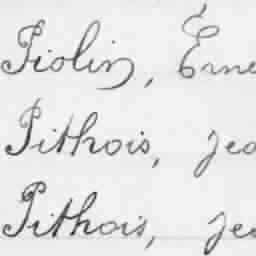 Piolin, Erne
Pithois, jea
Pithois, jea